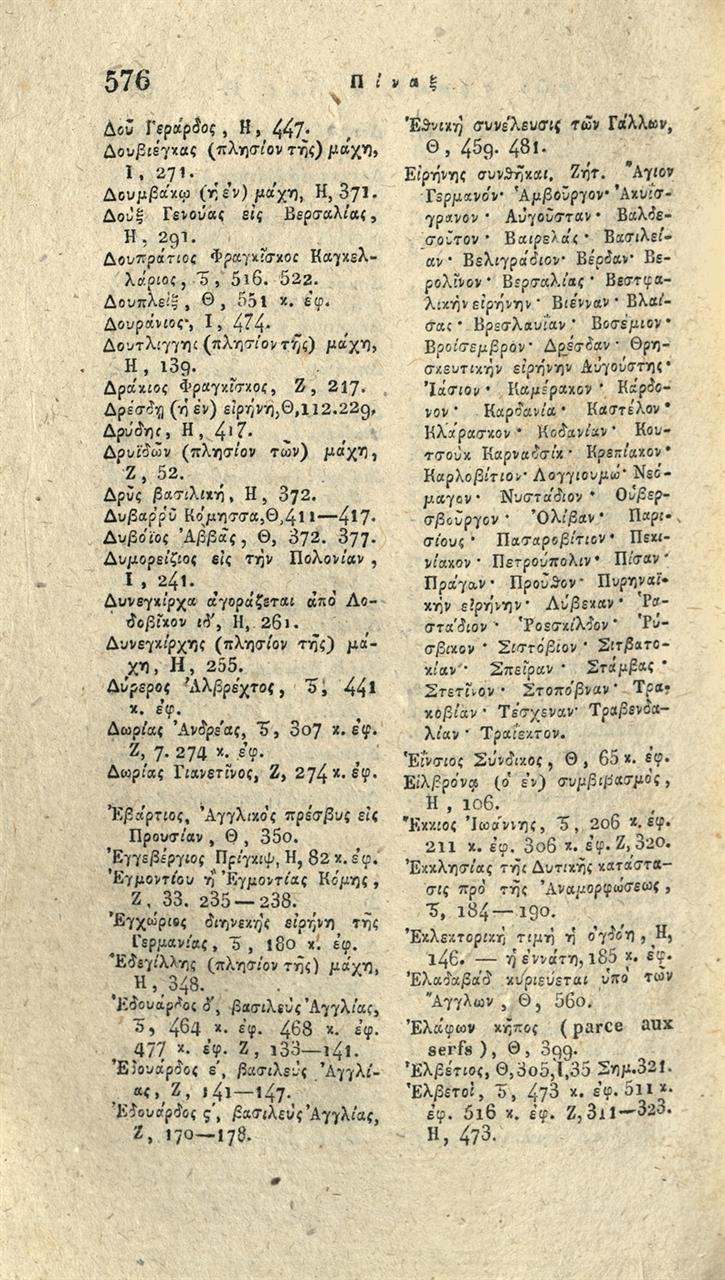 576
Πίναξ
Δοῦ Γεράρδος, Η, 447.
Δουβιέγκας (πλησίον τῆς) μάχη,
Ι, 271.
Δουμβάκῳ (ἡ ἐν) μάχη, Η, 371.
Δούξ Γενούας εἰς Βερσαλίας,
Η, 291.
Δουπράτιος Φραγκῖσκος Καγκελ-
λάριος, Ϛ, 516. 522.
Δουπλείξ, Θ, 551 κ. ἐφ.
Δουράνιος, Ι, 474.
Δουτλιγγης (πλησίον τῆς) μάχη,
Η, 139.
Δράκιος Φραγκῖσκος, Ζ, 217.
Δρέσδῃ (ἡ ἐν) εἰρήνη, Θ, 112. 229.
Δρύδης, Η, 417.
Δρυϊδῶν (πλησίον τῶν) μάχη,
Ζ, 52.
Δρῦς βασιλική, Η, 372.
Δυβαῤῥῦ Κόμησσα, Θ, 411—417.
Δυβόϊος Ἀββᾶς, Θ, 372. 377.
Δυμορείζιος εἰς τὴν Πολονίαν,
Ι, 241.
Δυνεγκίρχα ἀγοράζεται ἀπὸ Λο-
δοβῖκον ιδ΄, Η, 261.
Δυνεγκίρχης (πλησίον τῆς) μά-
χη, Η, 255.
Δύρερος Ἀλβρέχτος, Ϛ, 441
κ. ἐφ.
Δωρίας Ἀνδρέας, Ϛ, 307 κ. ἐφ.
Ζ, 7. 274 κ. ἐφ.
Δωρίας Γιανετῖνος, Ζ, 274 κ. ἐφ.
Ἐβάρτιος, Ἀγγλικὸς πρέσβυς εἰς
Προυσίαν, Θ, 350.
Ἐγγεβέργιος Πρίγκιψ, Η, 82 κ. ἐφ.
Ἐγμοντίου ἢ Ἐγμοντίας Κόμης,
Ζ, 33. 235—238.
Ἐγχώριος διηνεκὴς εἰρήνη τῆς
Γερμανίας, Ϛ, 180 κ. ἐφ.
Ἐδεγίλλης (πλησίον τῆς) μάχη,
Η, 348.
Ἐδουάρδος δ΄, βασιλεὺς Ἀγγλίας,
Ϛ, 464 κ. ἐφ. 468 κ. ἐφ.
477 κ. ἐφ. Ζ, 133—141.
Ἐδουάρδος ε΄, βασιλεὺς Ἀγγλί-
ας, Ζ, 141—147.
Ἐδουάρδος ϛ΄, βασιλεὺς Ἀγγλίας,
Ζ, 170—178.
Ἐθνικὴ συνέλευσις τῶν Γάλλων,
Θ, 459. 481.
Εἰρήνης συνθῆκαι. Ζήτ. Ἅγιον
Γερμανόν· Ἀμβοῦργον· Ἀκυΐσ-
γρανον· Αὐγοῦσταν· Βαλδε-
σοῦτον· Βαιρελάς· Βασιλεί-
αν· Βελιγράδιον· Βέρδαν· Βε-
ρολῖνον· Βερσαλίας· Βεστφα-
λικὴν εἰρήνην· Βιένναν· Βλαί-
σας· Βρεσλαυΐαν· Βοσέμιον·
Βροίσεμβρον· Δρέσδαν· Θρη-
σκευτικὴν εἰρήνην Αὐγούστης·
Ἰάσιον· Καμέρακον· Κάρδο-
νον· Καρδανία· Καστέλον·
Κλάρασκον· Κοδανίαν· Κου-
τσοὺκ Καρναδσίκ· Κρεπίακον·
Καρλοβίτιον· Λογγιουμώ· Νεό-
μαγον· Νυστάδιον· Οὐβερ-
σβοῦργον· Ὀλίβαν· Παρι-
σίους· Πασαροβίτιον· Πεκι-
νίακον· Πετρούπολιν· Πίσαν·
Πράγαν· Προῦθον· Πυρηναϊ-
κὴν εἰρήνην· Λύβεκαν· Ῥα-
στάδιον· Ῥοεσκίλδον· Ῥύ-
σβικον· Σιστόβιον· Σιτβατο-
κίαν· Σπεῖραν· Στάμβας·
Στετῖνον· Στοπόβναν· Τρα-
κοβίαν· Τέσχεναν· Τραβενδα-
λίαν· Τραΐεκτον.
Εἵνσιος Σύνδικος, Θ, 65 κ. ἐφ.
Εἱλβρόνᾳ (ὁ ἐν) συμβιβασμός,
Η, 106.
Ἔκκιος Ἰωάννης, Ϛ, 206 κ. ἐφ.
211 κ. ἐφ. 306 κ. ἐφ. Ζ, 320.
Ἐκκλησίας τῆς Δυτικῆς κατάστα-
σις πρὸ τῆς Ἀναμορφώσεως,
Ϛ, 184—190.
Ἐκλεκτορικὴ τιμὴ ἡ ὀγδόη, Η,
146. — ἡ ἐννάτη, 185 κ. ἐφ.
Ἐλαδαβὰδ κυριεύεται ὑπὸ τῶν
Ἄγγλων, Θ, 560.
Ἐλάφων κῆπος (parce aux
serfs), Θ, 399.
Ἑλβέτιος, Θ, 305, Ι, 35 Σημ. 321.
Ἑλβετοί, Ϛ, 473 κ. ἐφ. 511 κ.
ἐφ. 516 κ. ἐφ. Ζ, 311—323.
Η, 473.